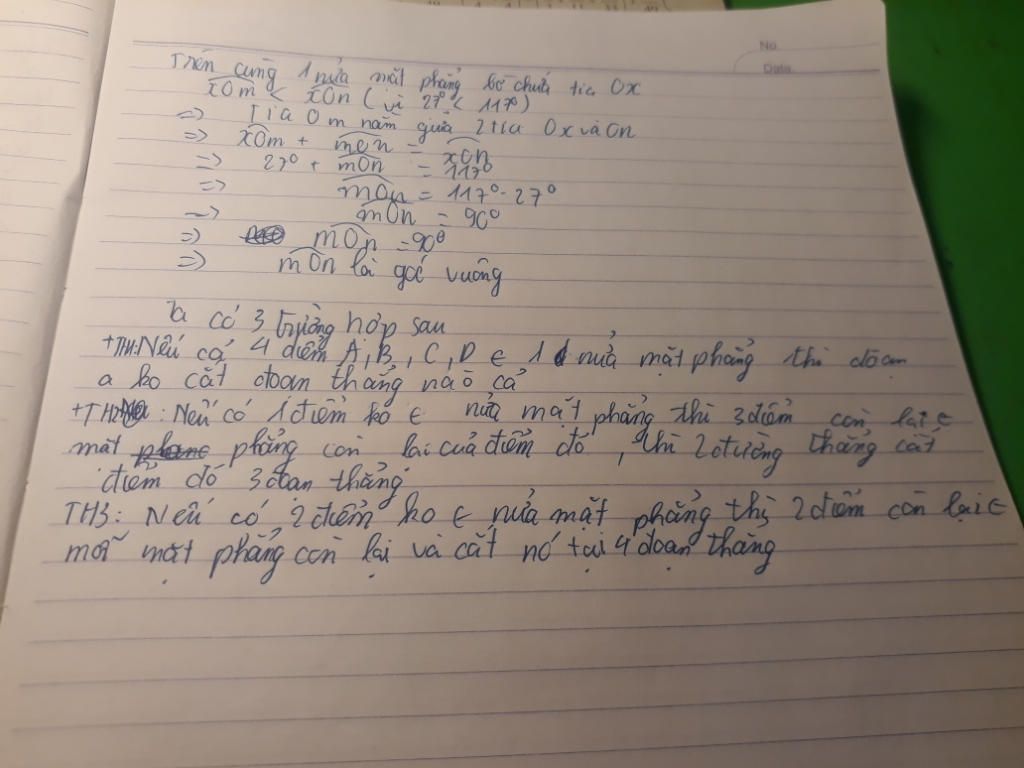 No.
Date.
Trên cùng 1 nửa mặt phẳng bờ chứa tia Ox
xOm < xOn (vì 27° < 117°)
=> Tia Om nằm giữa 2 tia Ox và On
=> xOm + mOn = xOn
=> 27° + mOn = 117°
=> mOn = 117° - 27°
=> mOn = 90°
=> mOn = 90°
=> mOn là góc vuông
Ta có 3 trường hợp sau
+TH1: Nếu cả 4 điểm A, B, C, D ∈ 1 nửa mặt phẳng thì đoạn
a ko cắt đoạn thẳng nào cả
+TH2: Nếu có 1 điểm ko ∈ nửa mặt phẳng thì 3 điểm còn lại ∈
mặt phẳng còn lại của điểm đó, thì 2 đường thẳng cắt
điểm đó 3 đoạn thẳng
TH3: Nếu có 2 điểm ko ∈ nửa mặt phẳng thì 2 điểm còn lại ∈
mỗi mặt phẳng còn lại và cắt nó tại 4 đoạn thẳng